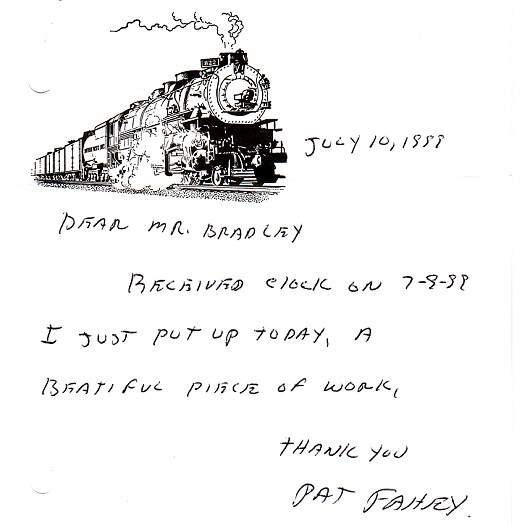 JULY 10, 1999
DEAR MR. BRADLEY
RECEIVED CLOCK ON 7-9-99
I JUST PUT UP TODAY, A
BEATIFUL PIECE OF WORK,
THANK YOU
PAT FAHEY.